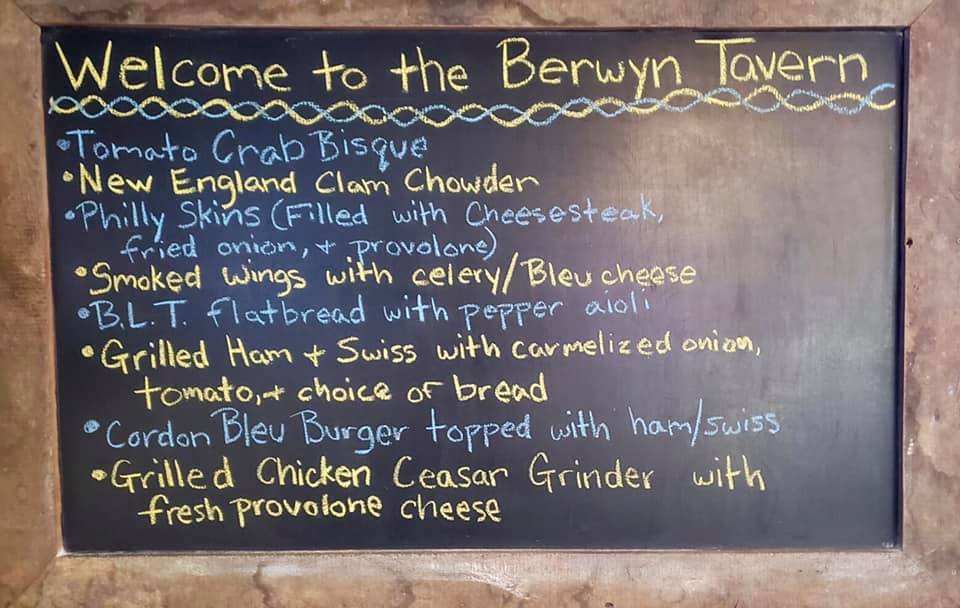 Welcome to the Berwyn Tavern
•Tomato Crab Bisque
•New England Clam Chowder
•Philly Skins (Filled with Cheesesteak,
fried onion, + provolone)
•Smoked wings with celery/Bleu cheese
•B.L.T. flatbread with pepper aioli
•Grilled Ham + Swiss with carmelized onion,
tomato, + choice of bread
•Cordon Bleu Burger topped with ham/swiss
•Grilled Chicken Ceasar Grinder with
fresh provolone cheese